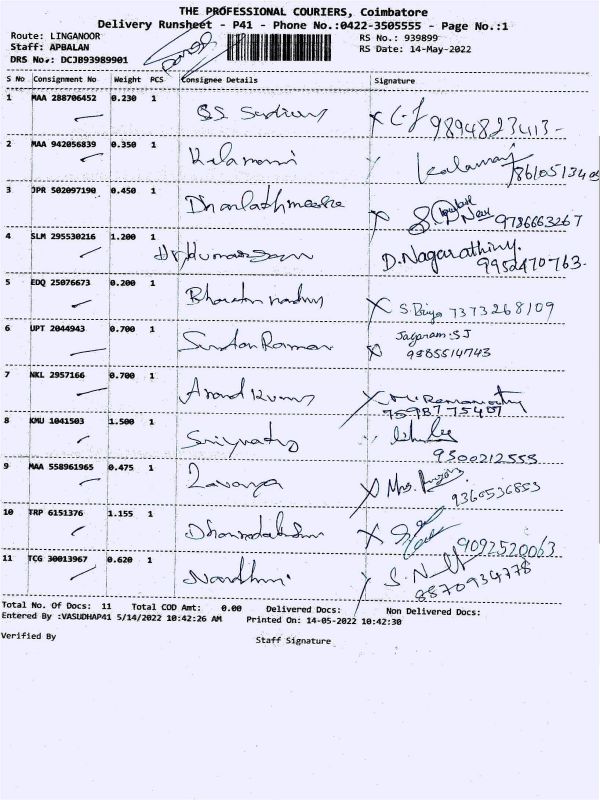 THE PROFESSIONAL COURIERS, Coimbatore
Delivery Runsheet - P41 - Phone No.:0422-3505555 - Page No.:1
Route: LINGANOOR RS No.: 939899
Staff: APBALAN RS Date: 14-May-2022
DRS No.: DCJB93989901
S No Consignment No Weight PCS Consignee Details Signature
1 MAA 288706452 0.230 1 9894823413
2 MAA 942056839 0.350 1 Kalamani Kalamani
3 JPR 502097190 0.450 1 9786663267
4 SLM 295530216 1.200 1 D.Nagarathiny.
9952470763
5 EDQ 25076673 0.200 1 S.Priya 7373268109
6 UPT 2044943 0.700 1 Jayaram.SJ
9385514743
7 NKL 2957166 0.700 1 Anand Kumar
7598775407
8 KMU 1041503 1.500 1
9300212555
9 MAA 558961965 0.475 1 Lavanya Mrs.
9360536853
10 TRP 6151376 1.155 1 9092520063
11 TCG 30013967 0.620 1 Nandhini
8870934778
Total No. Of Docs: 11 Total COD Amt: 0.00 Delivered Docs: Non Delivered Docs:
Entered By :VASUDHAP41 5/14/2022 10:42:26 AM Printed On: 14-05-2022 10:42:30
Verified By Staff Signature